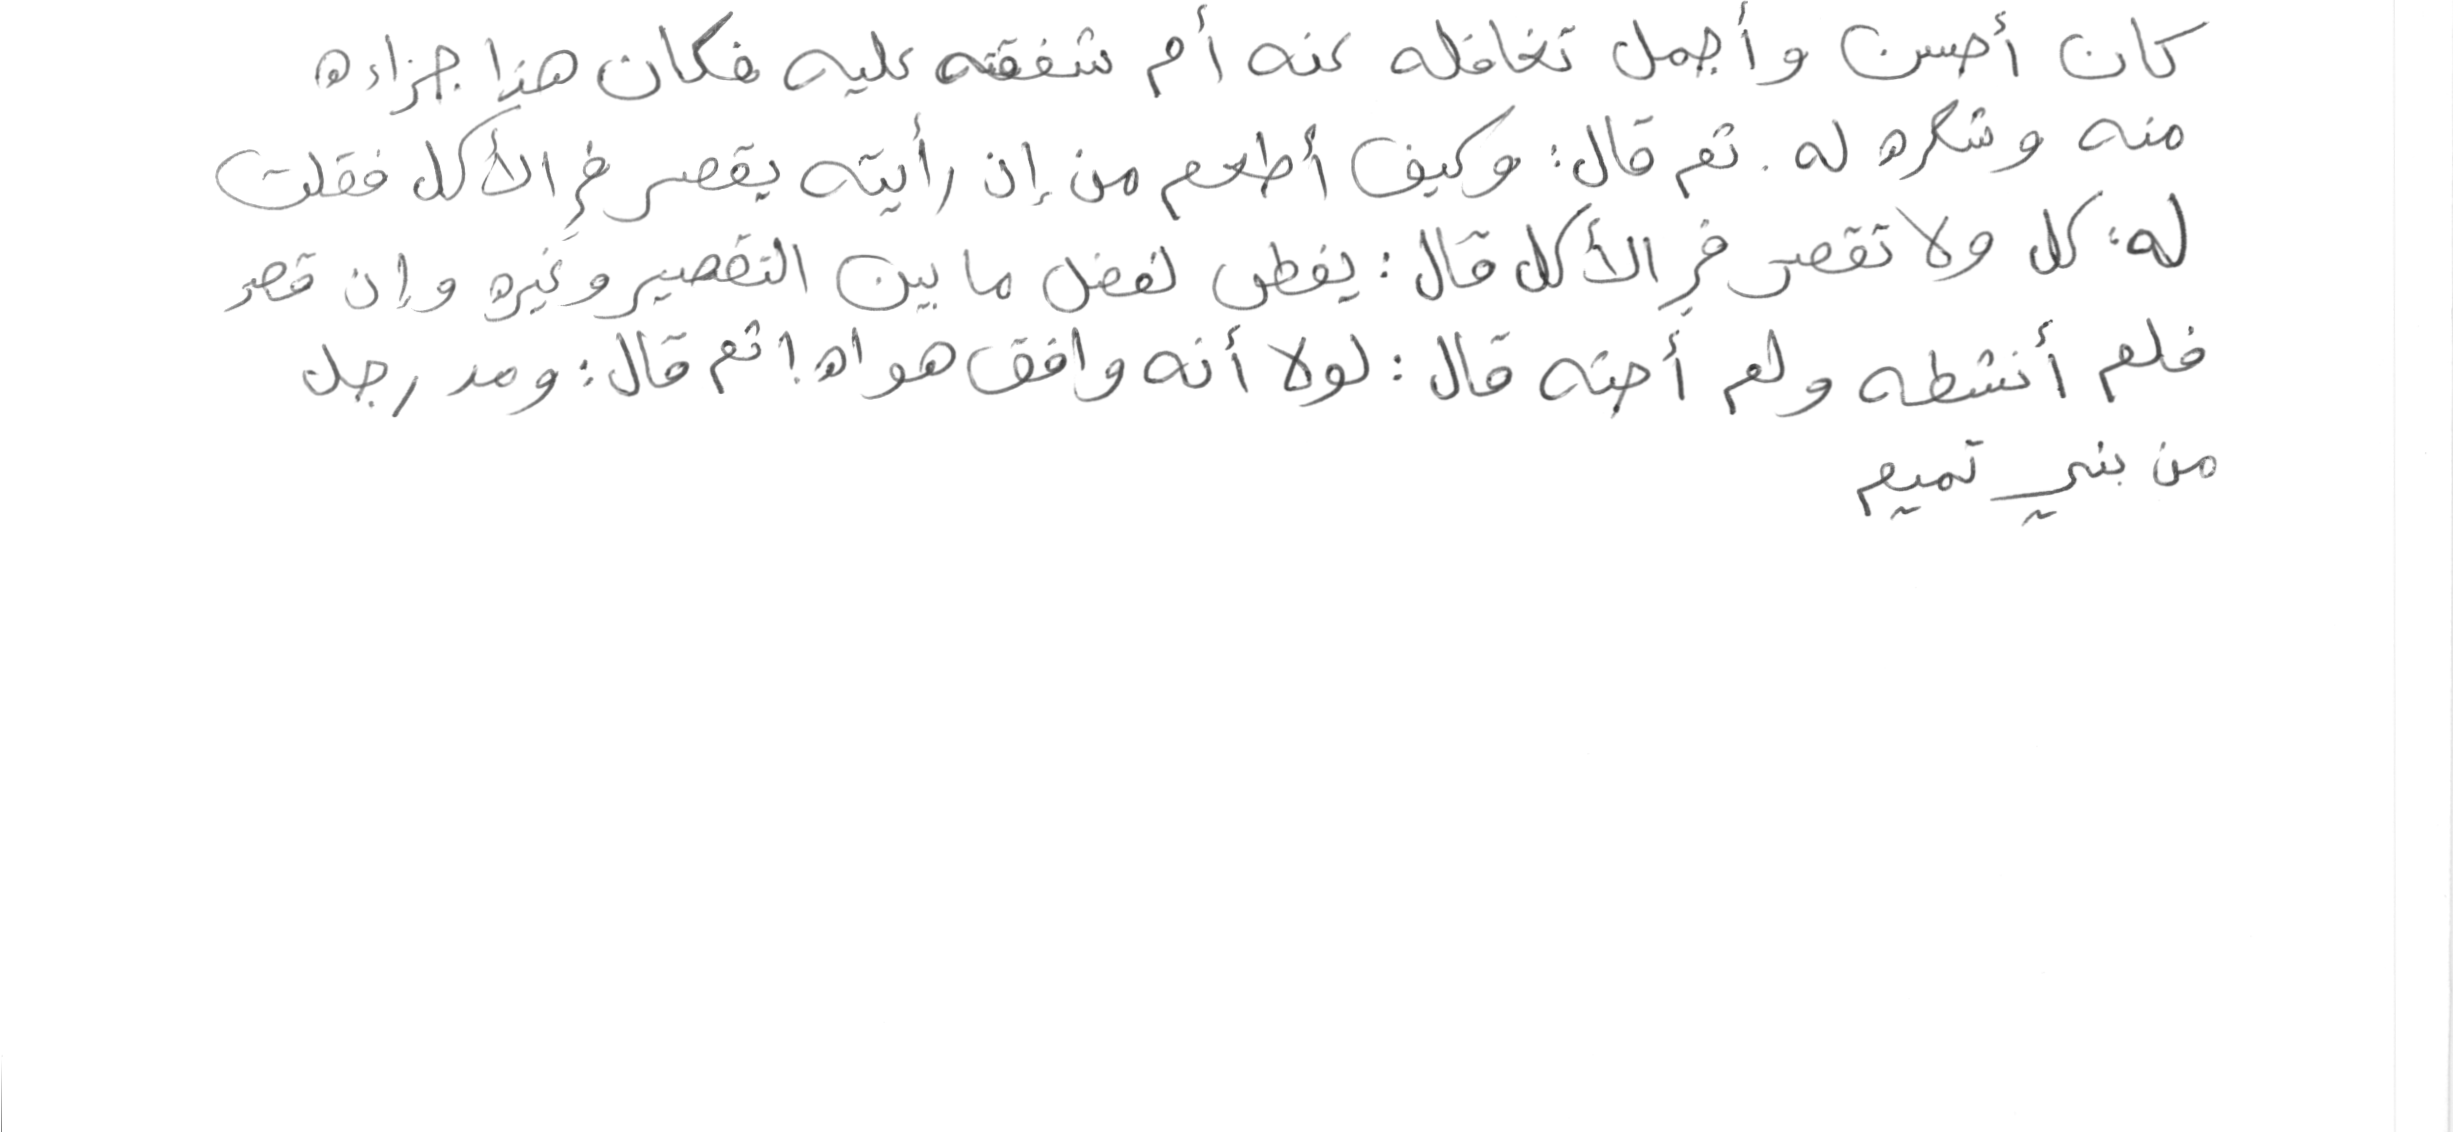 كان أحسن وأجمل تغافله عنه أم شفقته عليه فكان هذا جزاءه
منه وشكره له. ثم قال: وكيف أطعم من إن رأيته يقصر في الأكل فقلت
له: كل ولا تقصر في الأكل قال: يفطن لفضل ما بين التقصير وغيره وإن قصر
فلم أنشطه ولم أحثه قال: لولا أنه وافق هواه! ثم قال: ومد رجل
من بني تميم